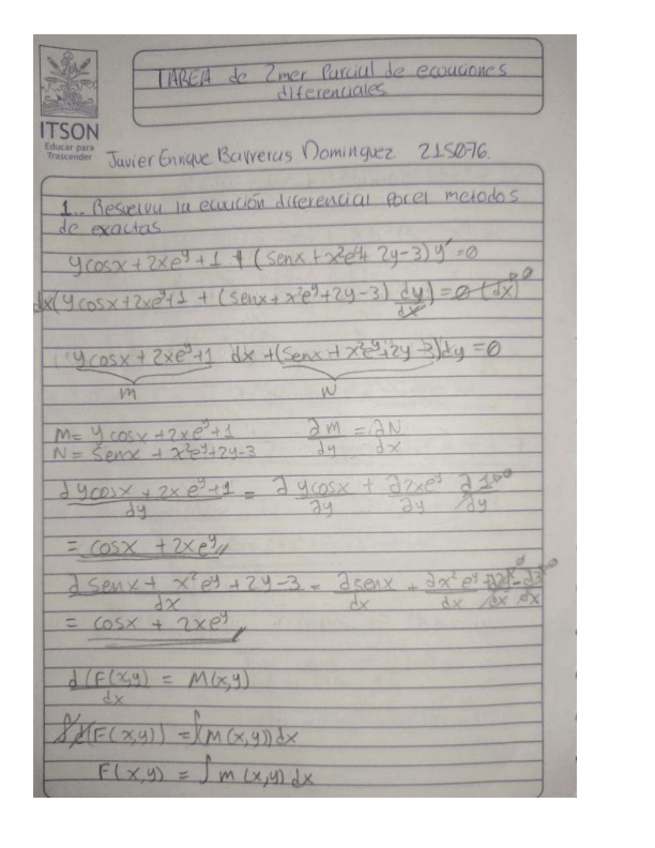 TAREA de 2mer Parcial de ecuaciones
diferenciales
ITSON
Educar para
Trascender
Javier Enrique Barreras Dominguez 215076.
1.. Resuelva la ecuación diferencial por el metodos
de exactas
ycosx + 2xe^y + 1 + (senx + x²e^y + 2y - 3) y' = 0
dx(ycosx + 2xe^y + 1 + (senx + x²e^y + 2y - 3) dy/dx) = 0 (dx) 0
ycosx + 2xe^y + 1 dx + (senx + x²e^y + 2y - 3)dy = 0
M N
M = ycosx + 2xe^y + 1 ∂m/dy = ∂N/dx
N = Senx + x²e^y + 2y - 3
∂ycosx + 2xe^y + 1/dy = ∂ycosx/∂y + ∂2xe^y/∂y ∂1/∂y 0
= cosx + 2xe^y//
∂senx + x²e^y + 2y - 3/dx = ∂senx/dx + ∂x²e^y/dx + ∂2y/dx - ∂3/dx
= cosx + 2xe^y
d(F(x,y)/dx = M(x,y)
∫d(F(x,y)) = ∫(M(x,y))dx
F(x,y) = ∫m(x,y) dx